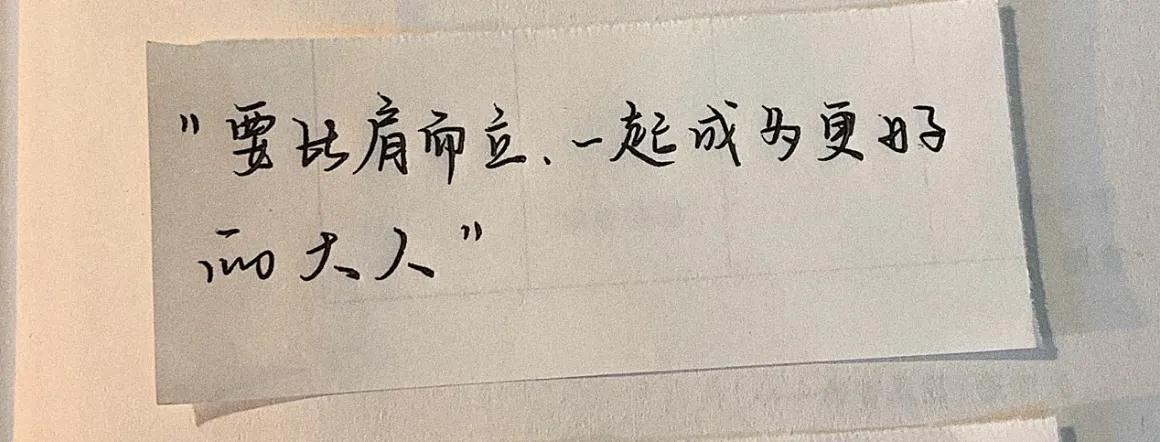 "要比肩而立、一起成为更好
的大人"